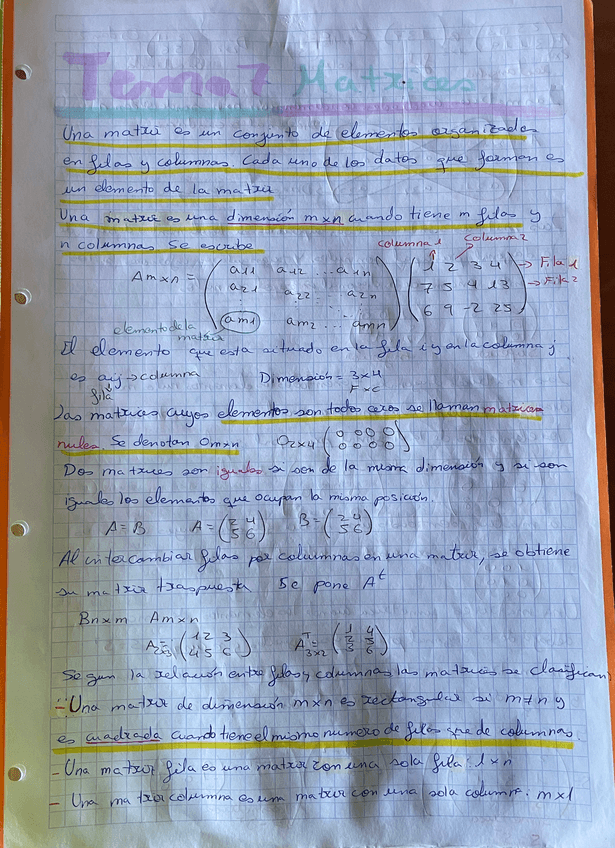 Tema 7 Matrices
Una matriz es un conjunto de elementos organizados
en filas y columnas. Cada uno de los datos que forman es
un elemento de la matriz
Una matriz es una dimensión m×n cuando tiene m filas y
n columnas. Se escribe
columna 1 columna 2
Am×n = ( a11 a12 ... a1n ) ( 1 2 3 4 ) → Fila 1
a21 a22 ... a2n 7 5 4 13 → Fila 2
am1 am2 ... amn 6 9 -2 25
elemento de la matriz
El elemento que esta situado en la fila i y en la columna j
es aij → columna Dimensión = 3×4
fila F×C
Las matrices cuyos elementos son todos ceros se llaman matrices
nulas. Se denotan Om×n O2×4 ( 0 0 0 0
0 0 0 0 )
Dos matrices son iguales si son de la misma dimensión y si son
iguales los elementos que ocupan la misma posición.
A = B A = ( 2 4 B = ( 2 4
5 6 ) 5 6 )
Al intercambiar filas por columnas en una matriz, se obtiene
su matriz traspuesta Se pone A^t
Bn×m Am×n
A2×3 = ( 1 2 3 A^T 3×2 = ( 1 4
4 5 6 ) 2 5
3 6 )
Segun la relación entre filas y columnas las matrices se clasifican
- Una matriz de dimensión m×n es rectangular si m≠n y
es cuadrada cuando tiene el mismo numero de filas que de columnas.
- Una matriz fila es una matriz con una sola fila: 1×n
- Una matriz columna es una matriz con una sola column. m×1